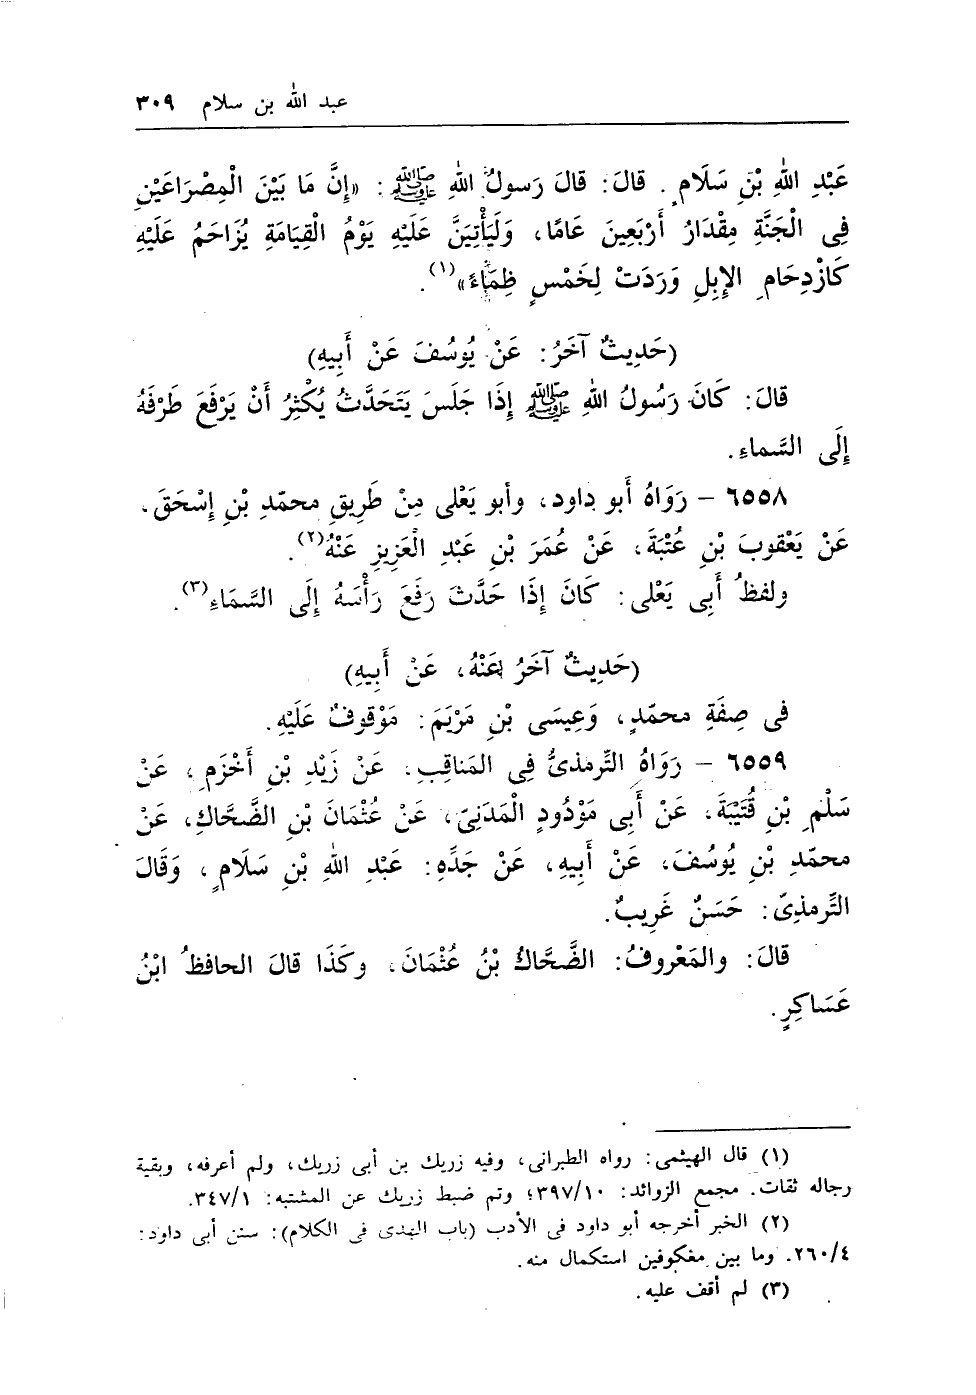 عبد الله بن سلام ٣٠٩
عَبْدِ اللهِ بْنِ سَلَامٍ. قالَ: قالَ رَسولُ اللهِ ﷺ: «إنَّ مَا بَيْنَ الْمِصْرَاعَيْنِ
فِى الْجَنَّةِ مِقْدَارُ أَرْبَعِينَ عَامًا، وَلَيَأْتِيَنَّ عَلَيْهِ يَوْمُ الْقِيَامَةِ يُزَاحَمُ عَلَيْهِ
كَازْدِحَامِ الإِبِلِ وَرَدَتْ لِخَمْسٍ ظِمَاءً»(١).
(حَدِيثٌ آخَرُ: عَنْ يُوسُفَ عَنْ أَبِيهِ)
قالَ: كَانَ رَسُولُ اللهِ ﷺ إِذَا جَلَسَ يَتَحَدَّثُ يُكْثِرُ أَنْ يَرْفَعَ طَرْفَهُ
إِلَى السَّماءِ.
٦٥٥٨ – رَوَاهُ أبو داود، وأبو يَعْلى مِنْ طَرِيقِ محمّدِ بْنِ إِسْحَقَ،
عَنْ يَعْقوبَ بْنِ عُتْبَةَ، عَنْ عُمَرَ بْنِ عَبْدِ الْعَزِيزِ عَنْهُ(٢).
ولفظُ أَبِى يَعْلى: كَانَ إِذَا حَدَّثَ رَفَعَ رَأْسَهُ إِلَى السَّمَاءِ(٣).
(حَدِيثٌ آخَرُ عَنْهُ، عَنْ أَبِيهِ)
فى صِفَةِ محمّدٍ، وَعِيسَى بْنِ مَرْيَمَ: مَوْقوفٌ عَلَيْهِ.
٦٥٥٩ – رَوَاهُ التِّرمذىُّ فِى المَناقِبِ، عَنْ زَيْدِ بْنِ أَخْزَمٍ، عَنْ
سَلْمِ بْنِ قُتَيْبَةَ، عَنْ أَبِى مَوْدُودٍ الْمَدَنِىّ، عَنْ عُثْمَانَ بْنِ الضَّحَّاكِ، عَنْ
محمّدِ بْنِ يُوسُفَ، عَنْ أَبِيهِ، عَنْ جَدِّهِ: عَبْدِ اللهِ بْنِ سَلَامٍ، وَقَالَ
التِّرمذِىّ: حَسَنٌ غَرِيبٌ.
قالَ: والمَعْروفُ: الضَّحَّاكُ بْنُ عُثْمَانَ، وكَذَا قالَ الحافظُ ابْنُ
عَسَاكِرٍ.
(١) قال الهيثمى: رواه الطبرانى، وفيه زريك بن أبى زريك، ولم أعرفه، وبقية
رجاله ثقات. مجمع الزوائد: ٣٩٧/١٠؛ وتم ضبط زريك عن المشتبه: ٣٤٧/١.
(٢) الخبر أخرجه أبو داود فى الأدب (باب الهدى فى الكلام): سنن أبى داود:
٢٦٠/٤. وما بين معكوفين استكمال منه.
(٣) لم أقف عليه.